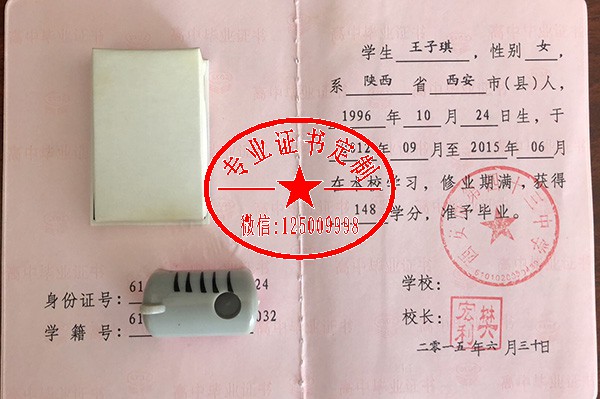 学生 王子琪 ，性别 女 ，
系 陕西 省 西安 市(县)人，
1996 年 10 月 24 日生，于
012 年 09 月至 2015 年 06 月
在本校学习，修业期满，获得
148 学分，准予毕业。
专业证书定制
微信:125009998
学校：
校长：
樊宏利
二〇一五年六月三十日
身份证号： 61 24
学籍号： 61 032